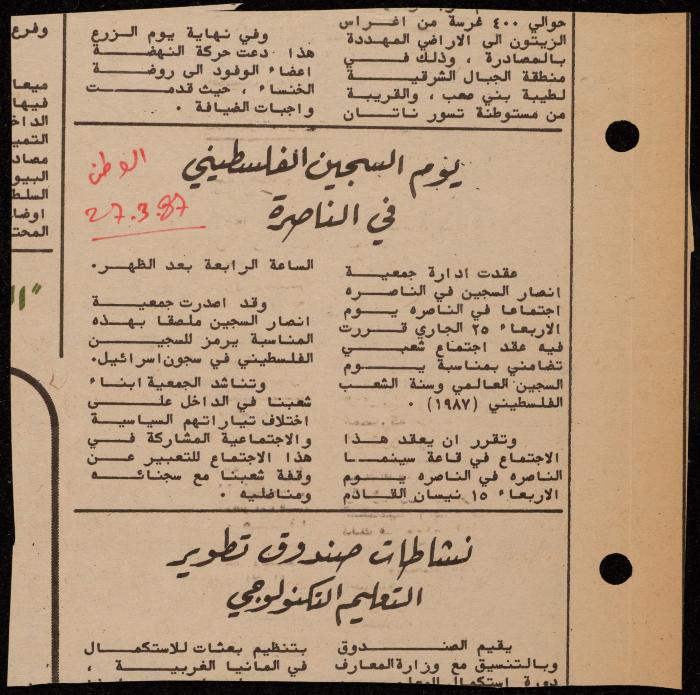 حوالي ٤٠٠ غرسة من اغراس
الزيتون الى الاراضي المهددة
بالمصادرة ، وذلك في
منطقة الجبال الشرقية
لطيبة بني صعب ، والقريبة
من مستوطنة تسور ناتان
وفي نهاية يوم الزرع
هذا دعت حركة النهضة
اعضاء الوفود الى روضة
الخنساء ، حيث قدمت
واجبات الضيافة .
يوم السجين الفلسطيني
في الناصرة
الوطن
27.3.87
عقدت ادارة جمعية
انصار السجين في الناصره
اجتماعا في الناصره يوم
الاربعاء ٢٥ الجاري قررت
فيه عقد اجتماع شعبي
تضامني بمناسبة يوم
السجين العالمي وسنة الشعب
الفلسطيني (١٩٨٧) .
وتقرر ان يعقد هذا
الاجتماع في قاعة سينما
الناصره في الناصره يوم
الاربعاء ١٥ نيسان القادم
الساعة الرابعة بعد الظهر.
وقد اصدرت جمعية
انصار السجين ملصقا بهذه
المناسبة يرمز للسجين
الفلسطيني في سجون اسرائيل.
وتناشد الجمعية ابناء
شعبنا في الداخل على
اختلاف تياراتهم السياسية
والاجتماعية المشاركة في
هذا الاجتماع للتعبير عن
وقفة شعبنا مع سجنائه
ومناضليه .
نشاطات صندوق تطوير
التعليم التكنولوجي
يقيم الصندوق
وبالتنسيق مع وزارة المعارف
دورة استكمال
بتنظيم بعثات للاستكمال
في المانيا الغربية ،
وفرع
فيها